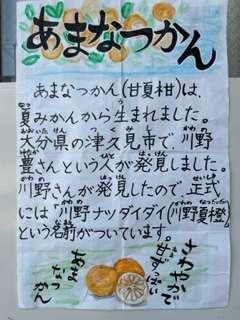 あまなつかん
あまなつかん(甘夏柑)は、
夏みかんから生まれました。
大分県の津久見市で、川野
豊さんという人が発見しました。
川野さんが発見したので、正式
には「川野ナツダイダイ(川野夏橙)
という名前がついています。
さわやかで
甘ずっぱい
あまなつかん